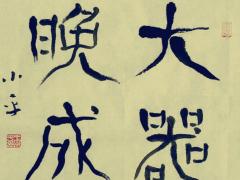 大器
晚成
小平